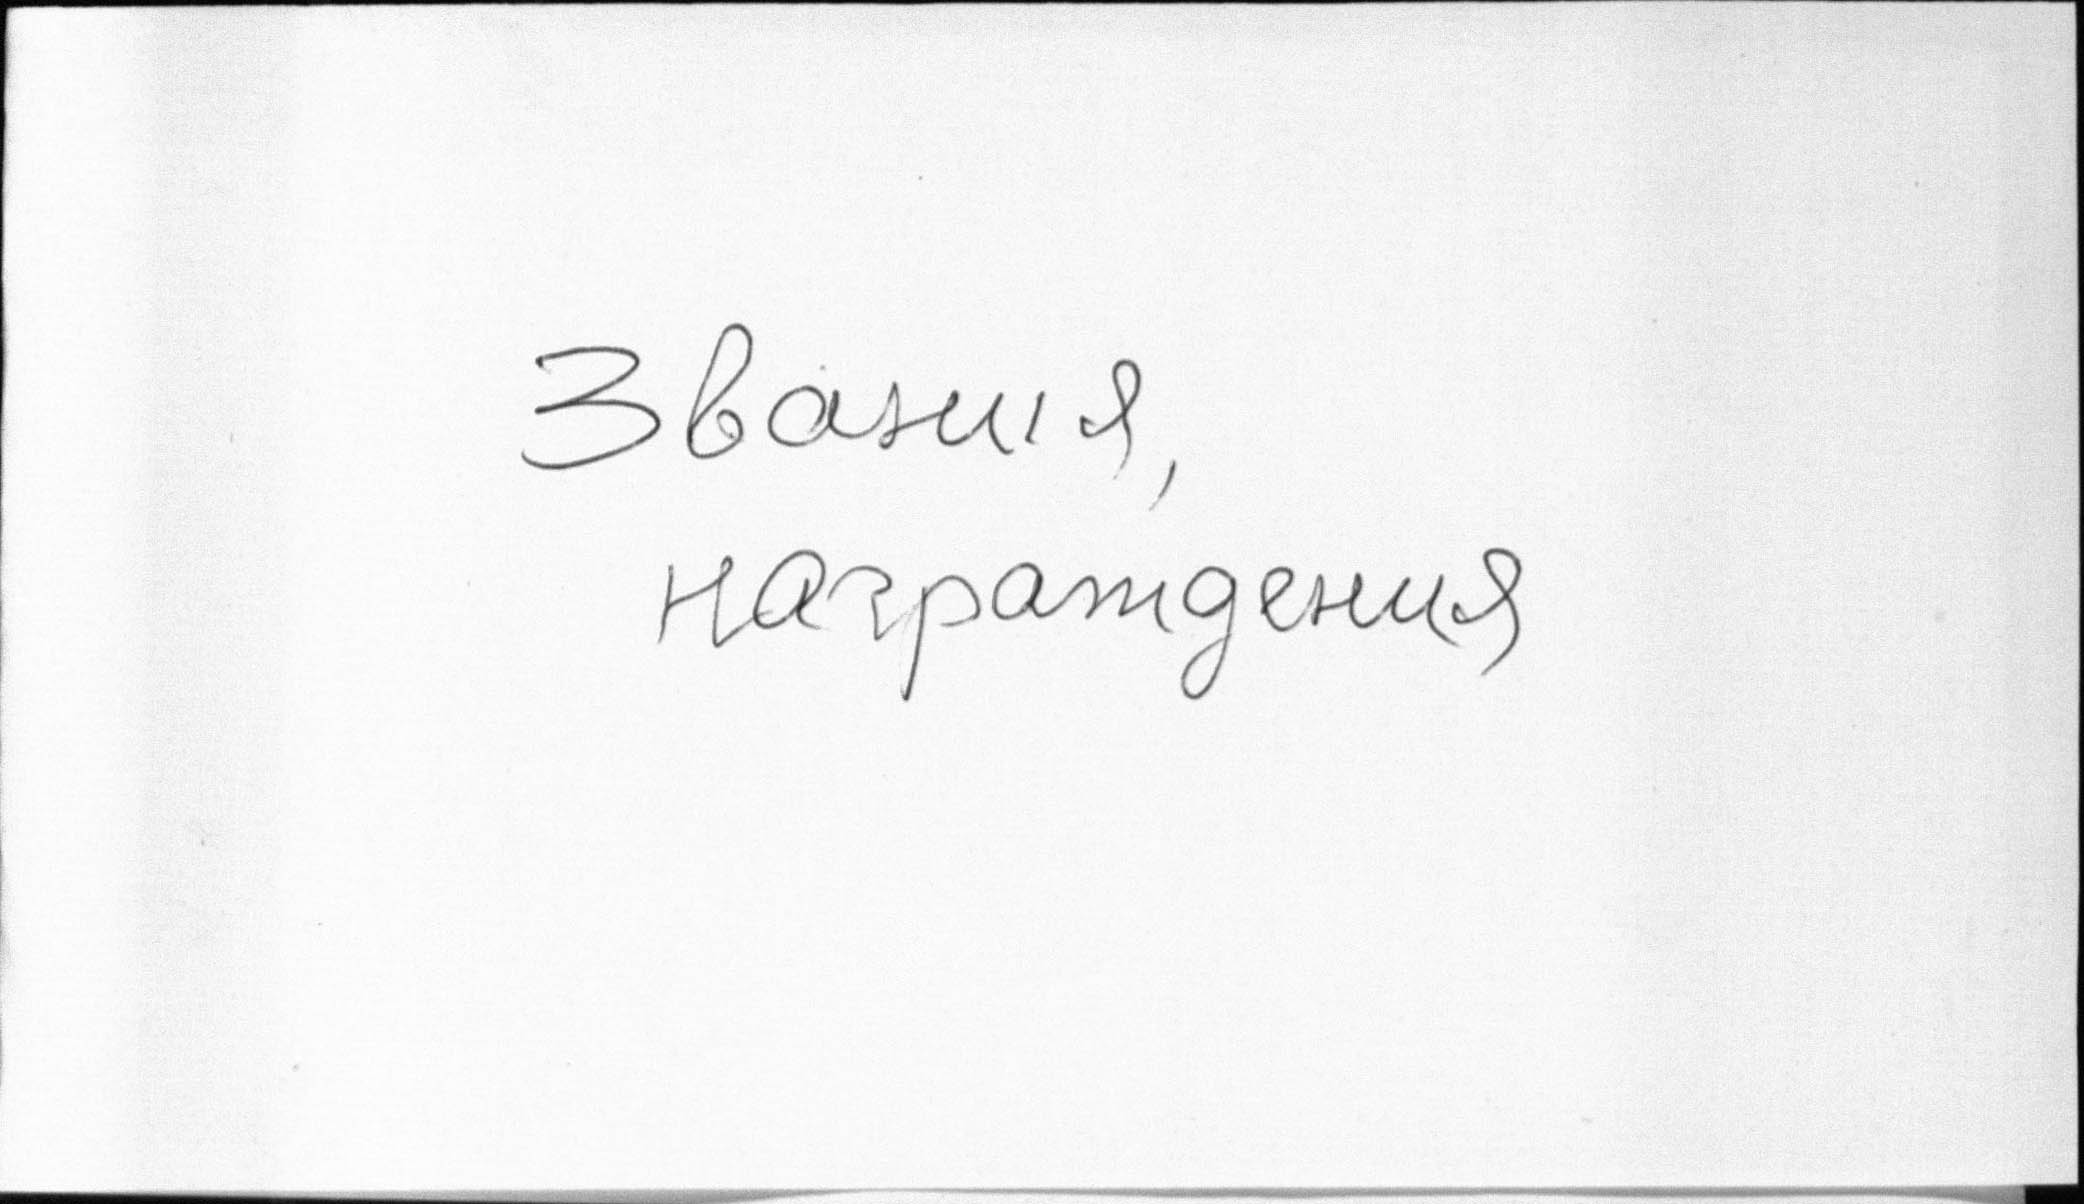 Звания,
награждения